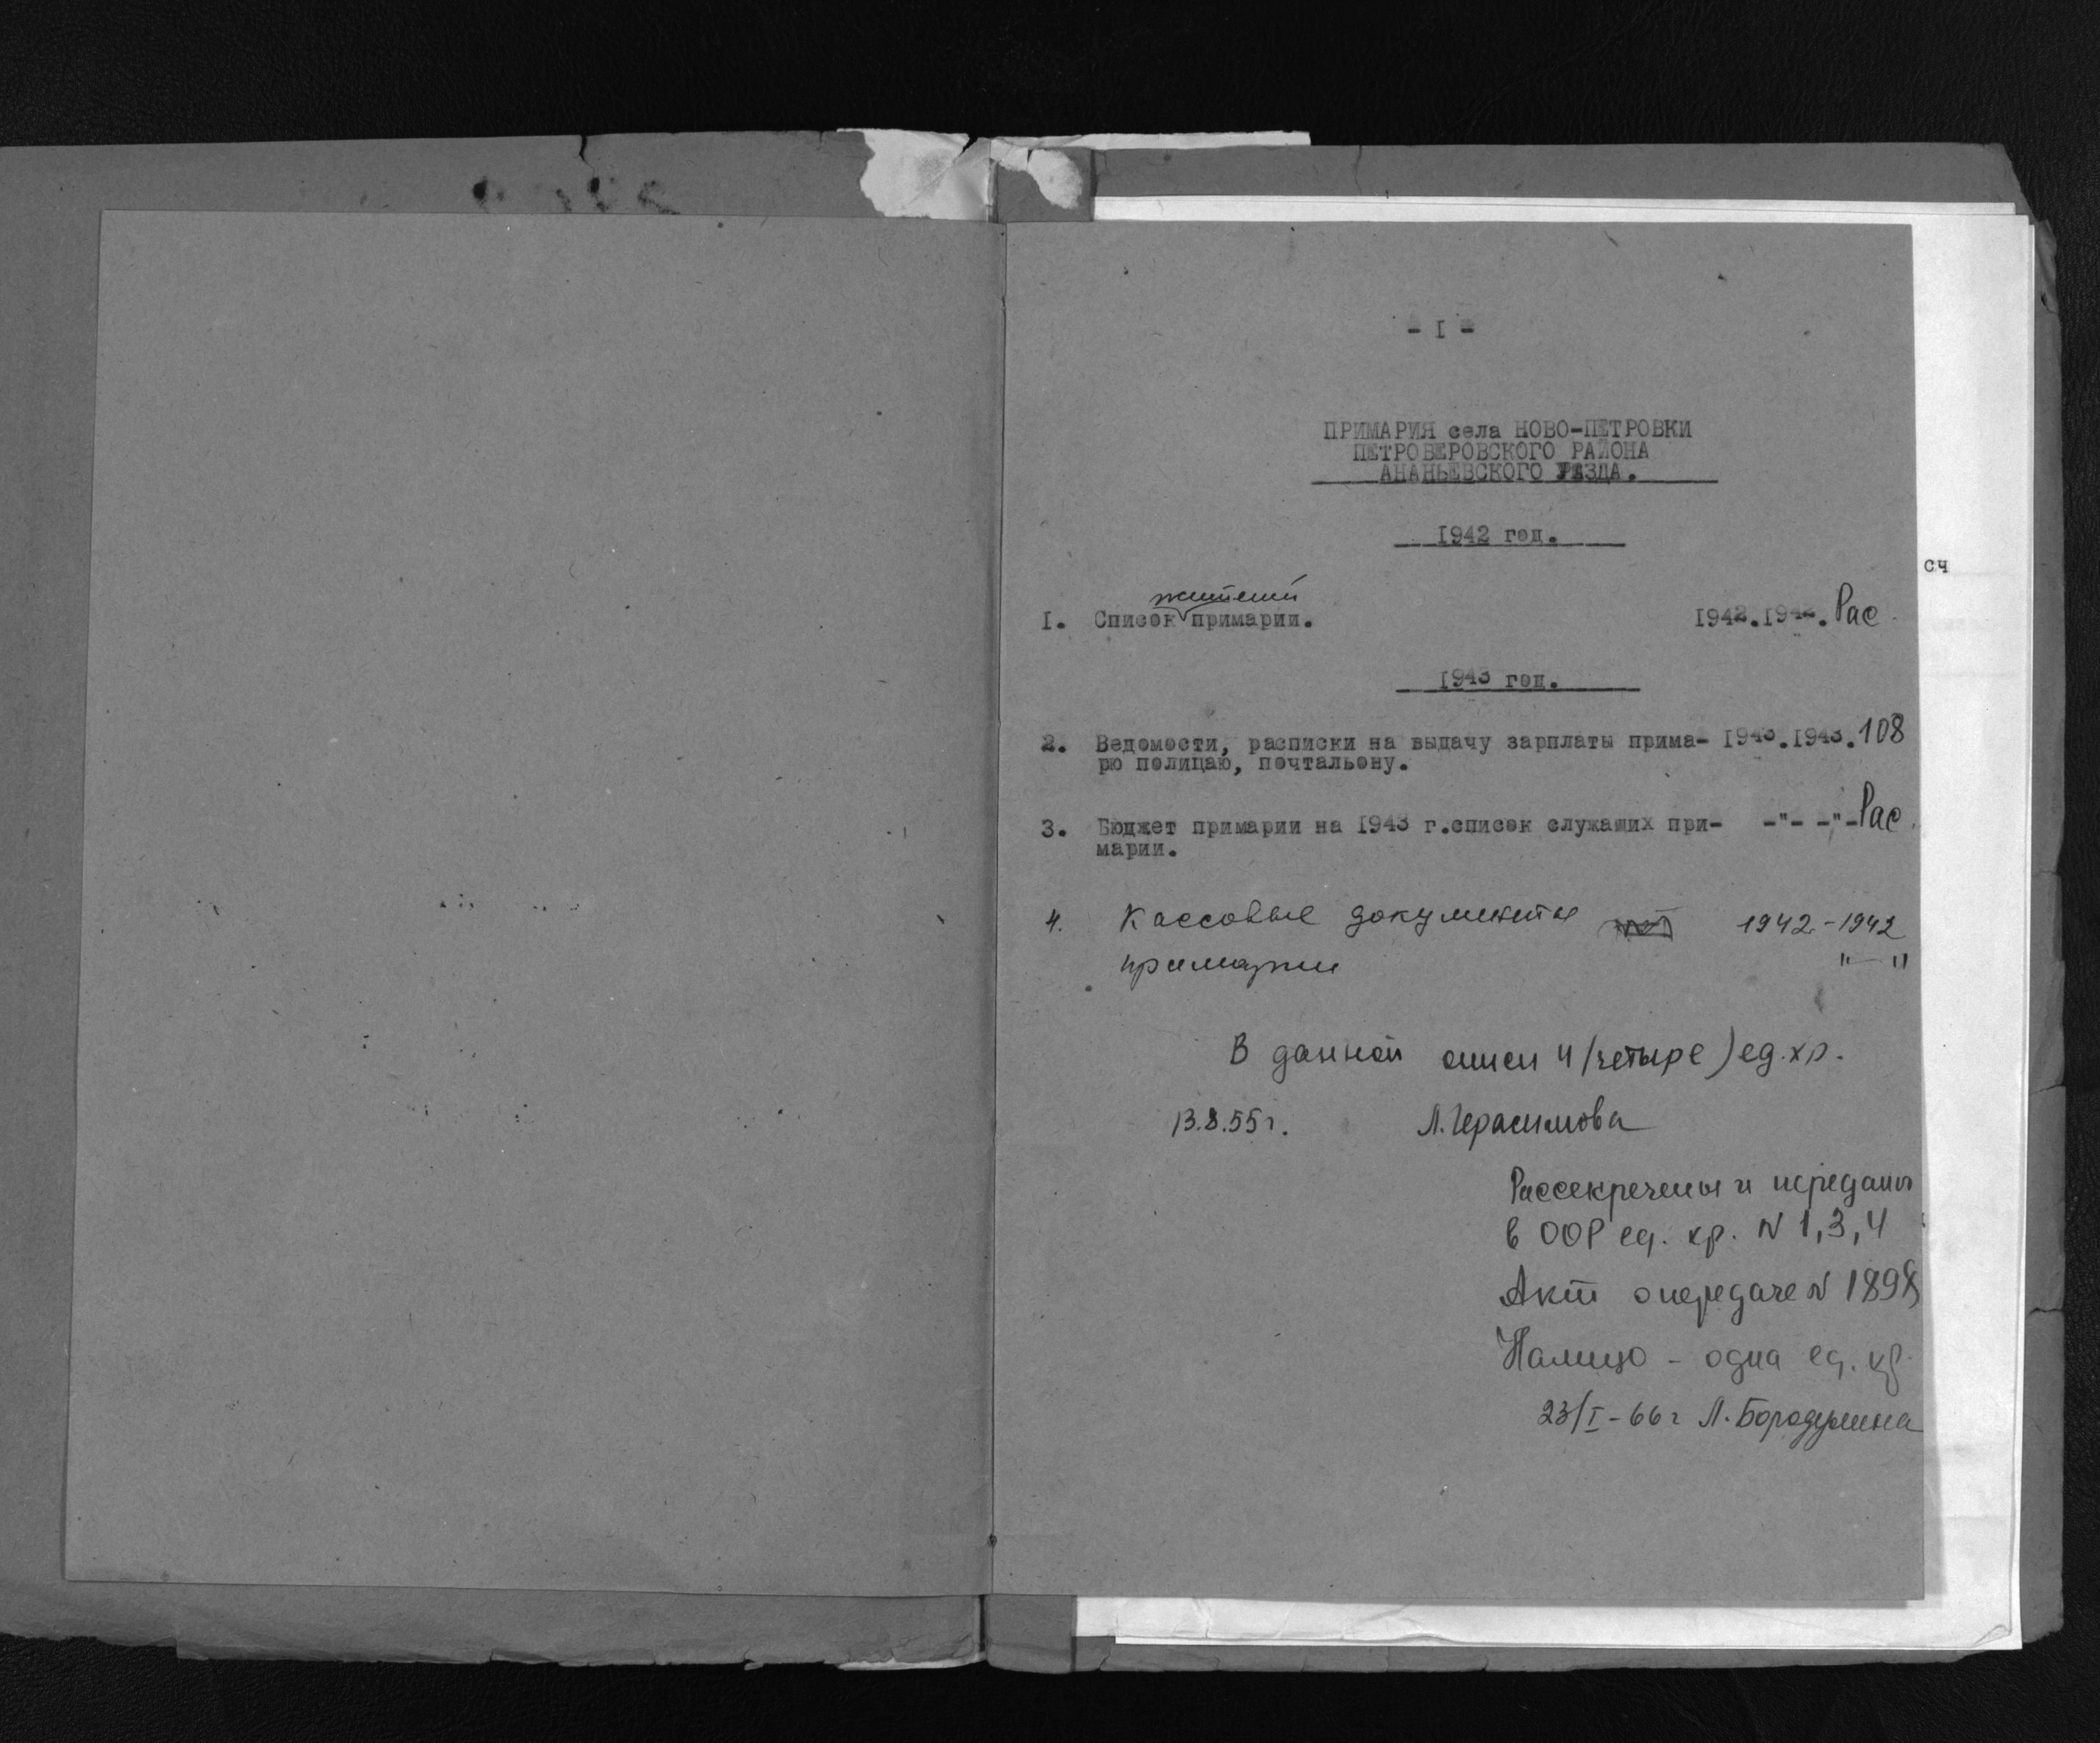 - I -
ПРИМАРИЯ села НОВО-ПЕТРОВКИ
ПЕТРОВЕРОВСКОГО РАЙОНА
АНАНЬЕВСКОГО УЕЗДА.
1942 год.
сч
жителей
I. Список примарии. 1942.1942. Рас
1943 год.
2. Ведомости, расписки на выдачу зарплаты прима- 1943.1943. 108
рю полицаю, почтальону.
3. Бюджет примарии на 1943 г.список служащих при- -"- -"- Рас.
марии.
4. Кассовые документы 1942-1942
примарии "—"
В данной описи 4 (четыре) ед.хр.
13.8.55г. Л.Герасимова
Рассекречены и переданы
в ООР ед. хр. N 1,3,4
Акт о передаче N 1898
Налицо - одна ед. хр.
23/I-66г Л.Бородулина